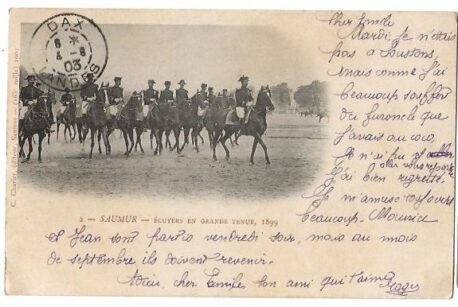 DAX
8 *
4 - 8
03
LANDES
Cher Emile
Mardi, je n'étais
pas à Soustons,
mais comme j'ai
beaucoup souffert
du furoncle que
j'avais au cou,
Je n'ai pu
aller vous
J'ai bien regretté.
Je m'amuse toujours
beaucoup. Maurice
2 — SAUMUR — ÉCUYERS EN GRANDE TENUE, 1899
et Jean sont partis vendredi soir, mais au mois
de septembre ils doivent revenir.
Adieu, cher Emile ton ami qui t'aime